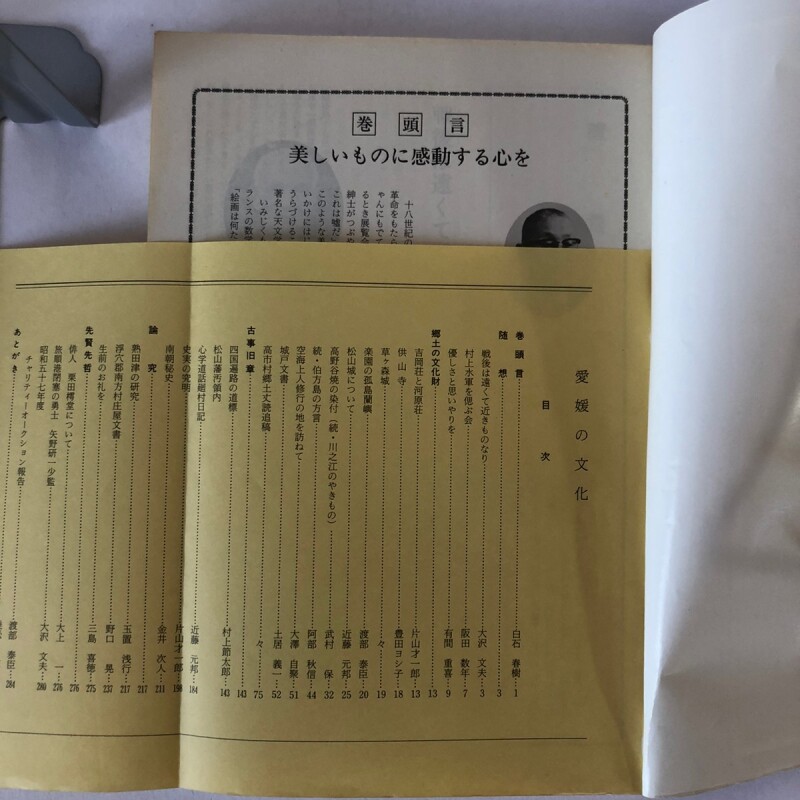 巻頭言
美しいものに感動する心を
十八世紀の
革命をもたら
ゃんにもでて
るとき展覧会
紳士がつぶや
これは嘘だ」
このような美
いかけにはじ
うらづけるこ
いみじくも
著名な天文学
ランスの数学
「絵画は何た
愛媛の文化
目次
巻頭言……白石 春樹…1
随想……3
戦後は遠くて近きものなり……大沢 文夫…3
村上水軍を偲ぶ会……阪田 数年…7
優しさと思いやりを……有間 重喜…9
郷土の文化財……13
吉岡荘と河原荘……片山才一郎…13
供山寺……豊田ヨシ子…18
草ヶ森城……々…19
楽園の孤島蘭嶼……渡部 泰臣…20
松山城について……近藤 元邦…25
高野谷焼の染付(続・川之江のやきもの)……武村 保…32
続・伯方島の方言……阿部 秋信…44
空海上人修行の地を訪ねて……大澤 自聚…51
城戸文書……土居 義一…52
高市村郷土丈読追稿……々…75
古事旧章……143
四国遍路の道標……村上節太郎…143
松山藩汚領内
心学道話廻村日記……近藤 元邦…184
史実の究明……片山才一郎…190
南朝秘史……金井 次人…211
論究……217
熟田津の研究……玉置 浅行…217
浮穴郡南方村庄屋文書……野口 晃…237
生前のお礼を……三島 喜徳…275
先賢先哲……276
俳人 栗田樗堂について……大上 一…276
旅順港閉塞の勇士 矢野研一少監……大沢 文夫…280
昭和五十七年度
チャリティーオークション報告……
あとがき……渡部 泰臣…284